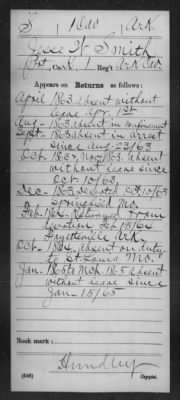 S | 1 Cav | Ark.
Jesse H Smith
Co. , 1 Reg't Ark Cav.
Appears on Returns as follows:
April 1863 absent without
leave Apr. 1st
Aug- 1863 absent in confinement
Sept- 1863 absent in arrest
since Aug 23/63
Oct. 1863, Nov 1863. absent
without leave since
Oct 10/63,
Dec- 1863. Oct 10/63
Springfield Mo.
Feb. 1864. Returned from
desertion Feb 15/64
Fayetteville Ark.
Oct. 1864. absent on duty
to St. Louis Mo.
Jan. 1865 to Mch 1865 absent
without leave since
Jan. 15/65
Book mark:
Hundley
(646) Copyist.